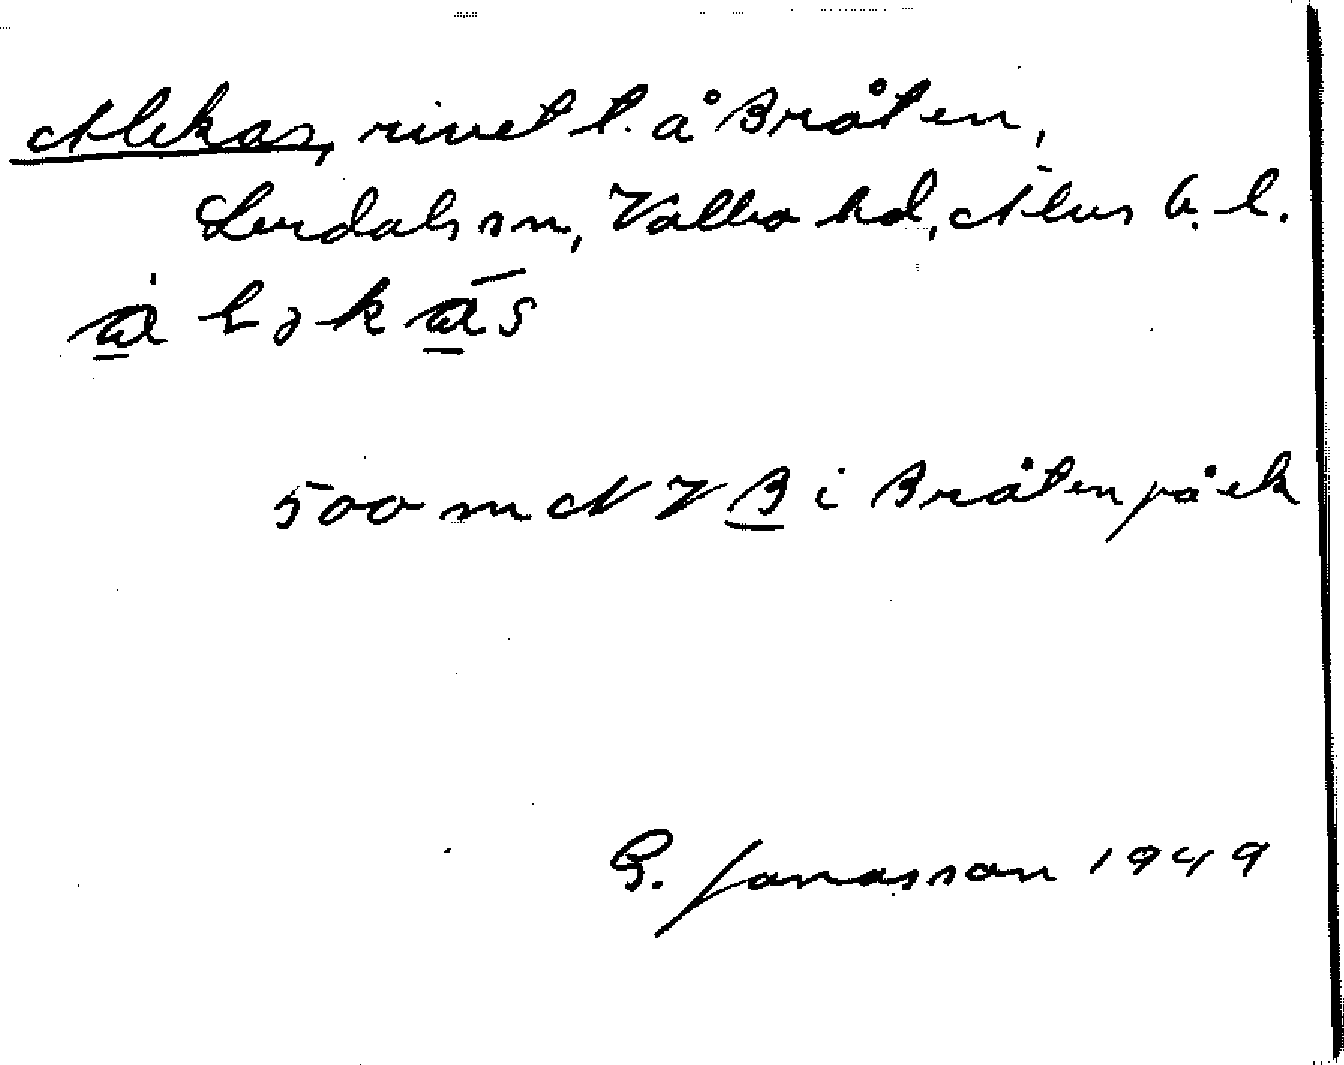 Alekas, rivet t. å Bråten,
Lerdals sn, Valbo hd, Älvs b. l.
500 m N V B i Bråten på ek
G. Jonasson 1949